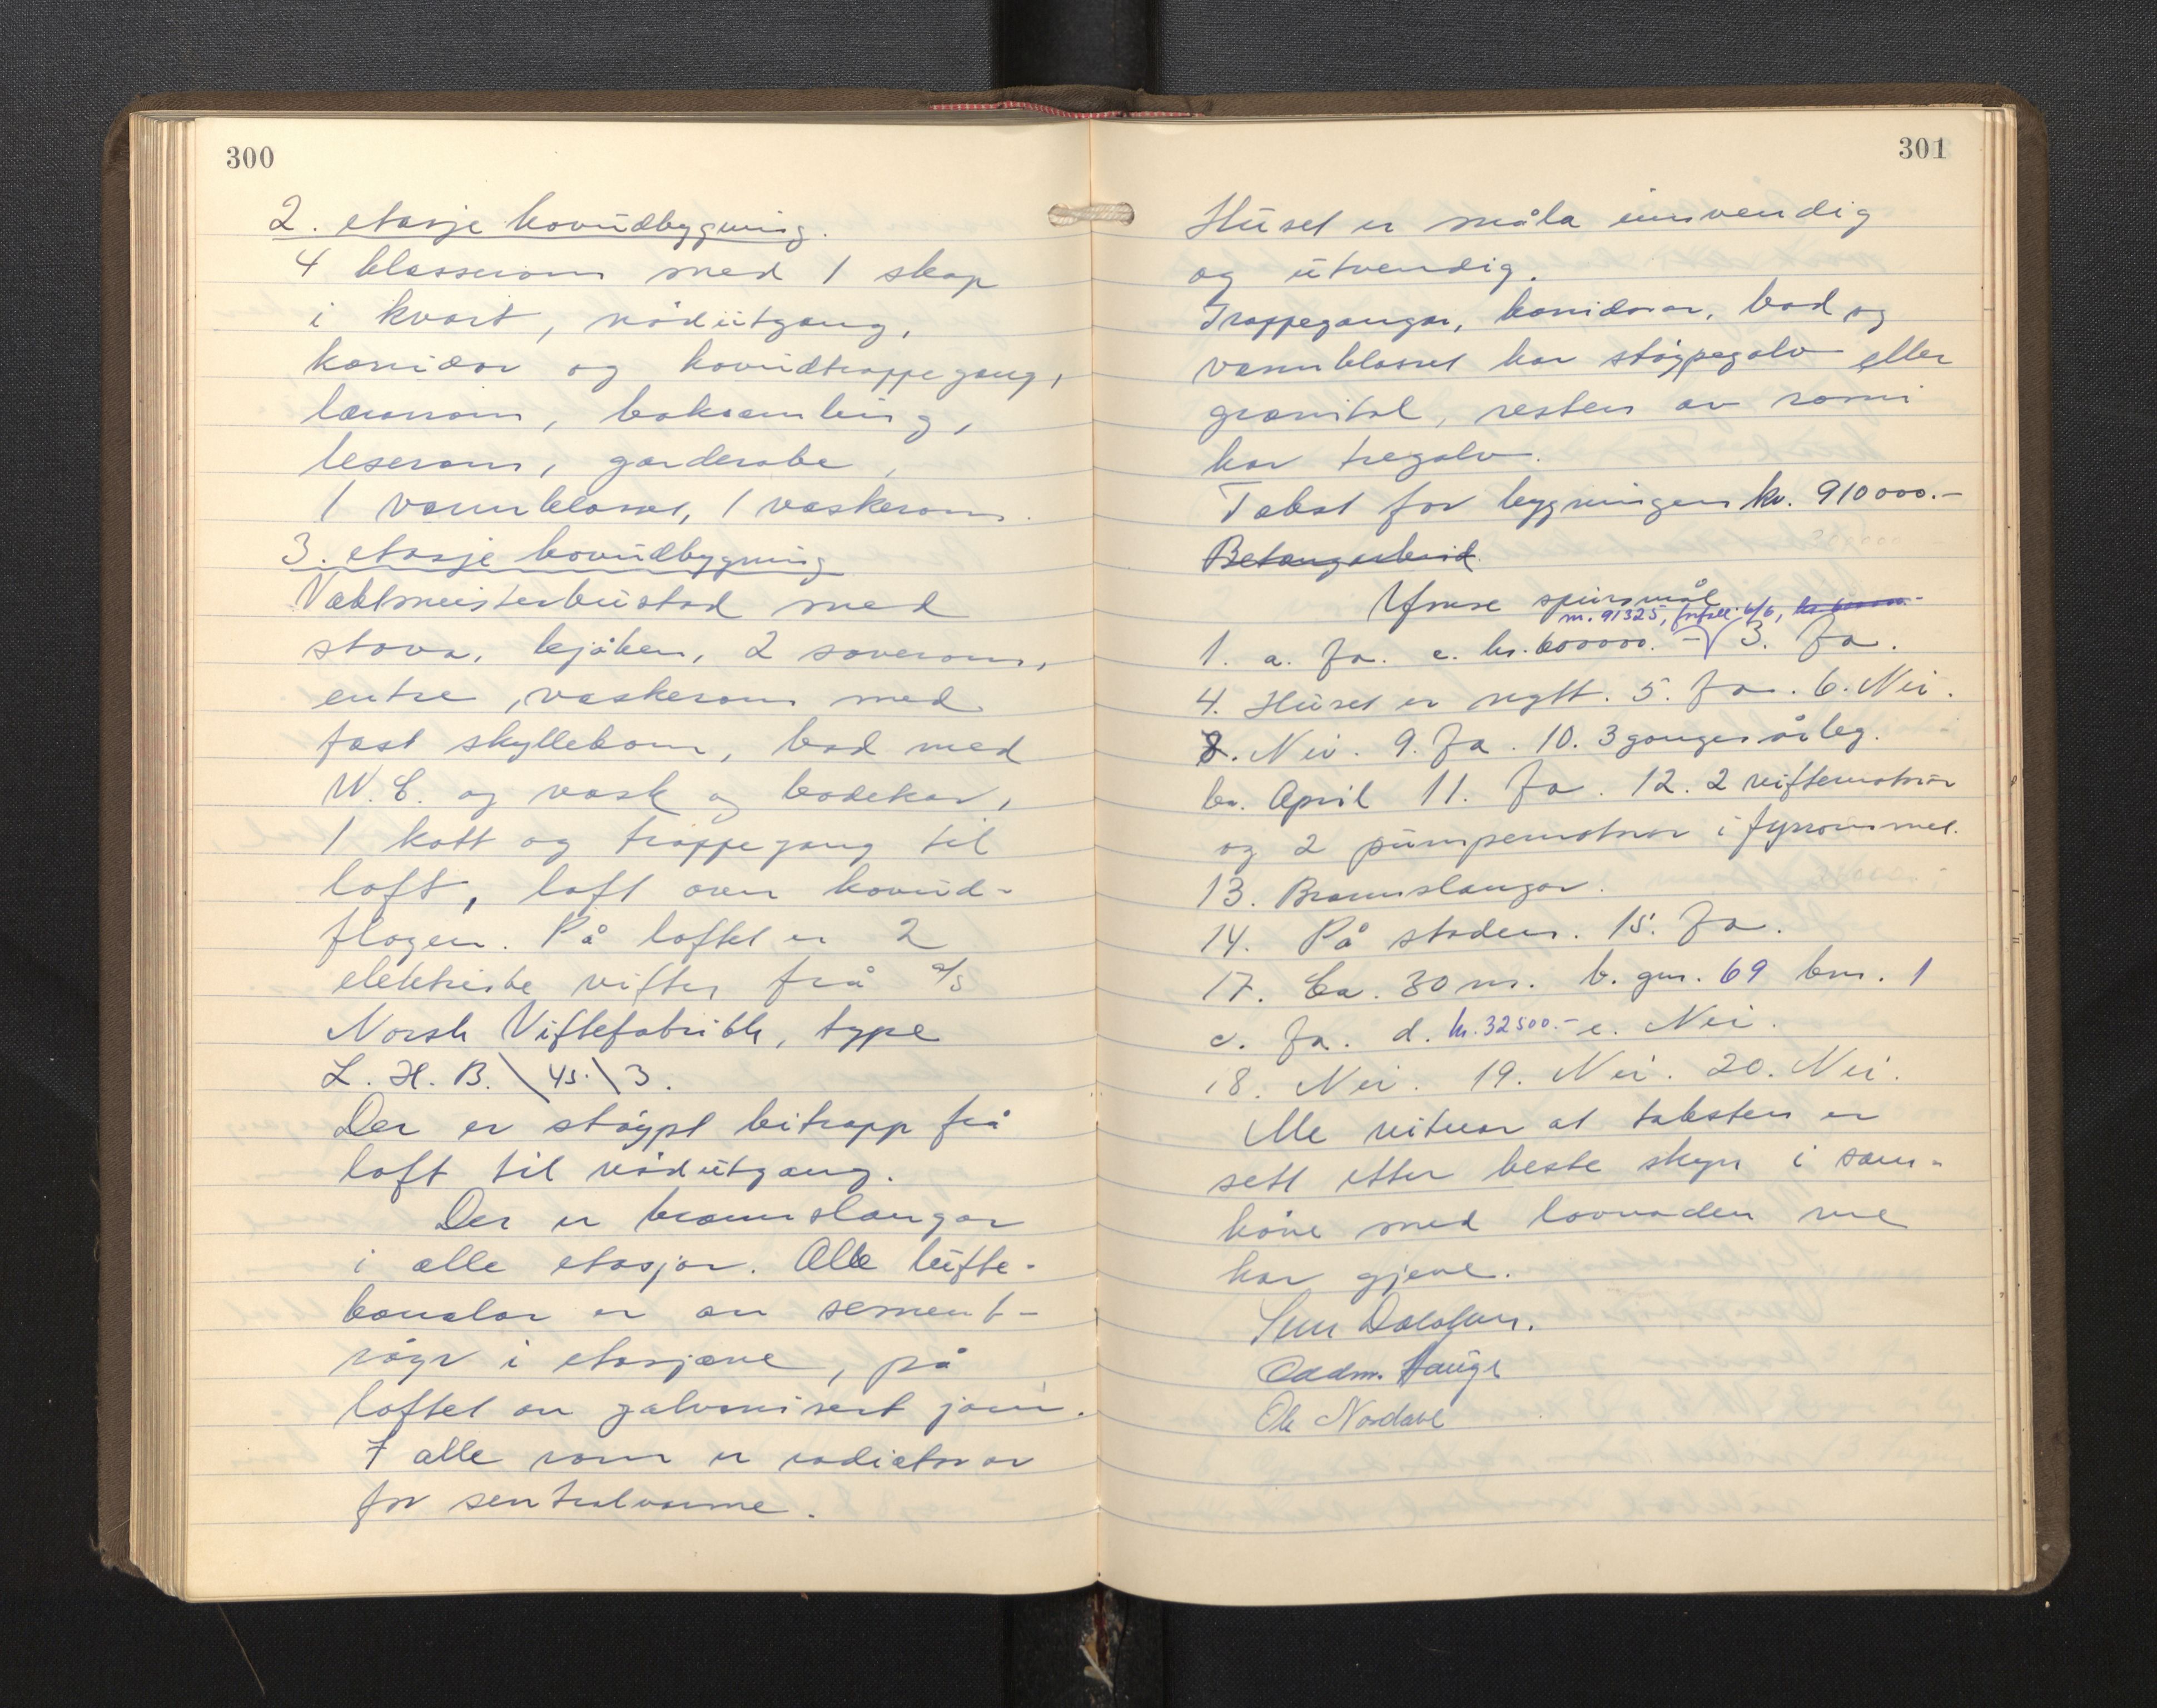 300
2. etasje hovudbygning.
4 klasserom med 1 skap
i kvart, nödutgang,
korridor og hovudtrappegang,
lærarrom, boksamling,
leserom, garderobe,
1 vannklosset, 1 vaskerom.
3. etasje hovudbygning
Vaktmeisterbustad med
stova, kjöken, 2 soverom,
entre, vaskerom med
fast skyllekom, bad med
W.C. og vask og badekar,
1 kott og trappegang til
loft, loft over hovud-
fløgen. På loftet er 2
elektriske vifter frå a/s
Norsk Viftefabrikk, type
L. H. B. \ 45. \ 3.
Der er stöypt leitrapp frå
loft til nödutgang.
Der er brannslangar
i alle etasjar. Alle lufte-
kanalar er av sement-
röyr i etasjane, på
loftet av galvanisert jarn.
I alle rom er radiatorar
for sentralvarme.
301
Huset er måla innvendig
og utvendig.
Trappegangar, korridorar, bad og
vannklosset har stöypegolv eller
granitol, resten av romi
har tregolv.
Takst for bygningen kr. 910000.-
Betongarbeid.
Ymse spursmål
nr. 91325, forfall 6/6, kr 600000.-
1. a. Ja. c. kr. 600000.- 3. Ja.
4. Huset er nytt. 5. Ja. 6. Nei.
8. Nei. 9. Ja. 10. 3 gonger årleg.
ca. April 11. Ja. 12. 2 viftemotorar
og 2 pumpemotorar i fyrrommet.
13. Brannslangar.
14. På staden. 15. Ja.
17. Ca. 30 m. b. gnr. 69 bnr. 1
c. Ja. d. kr. 32500.- e. Nei.
18. Nei. 19. Nei. 20. Nei.
Me vitnar at taksten er
sett etter beste skyn i sam-
höve med lovnaden me
har gjeve.
Oddm. Hauge
Ole Nordavl